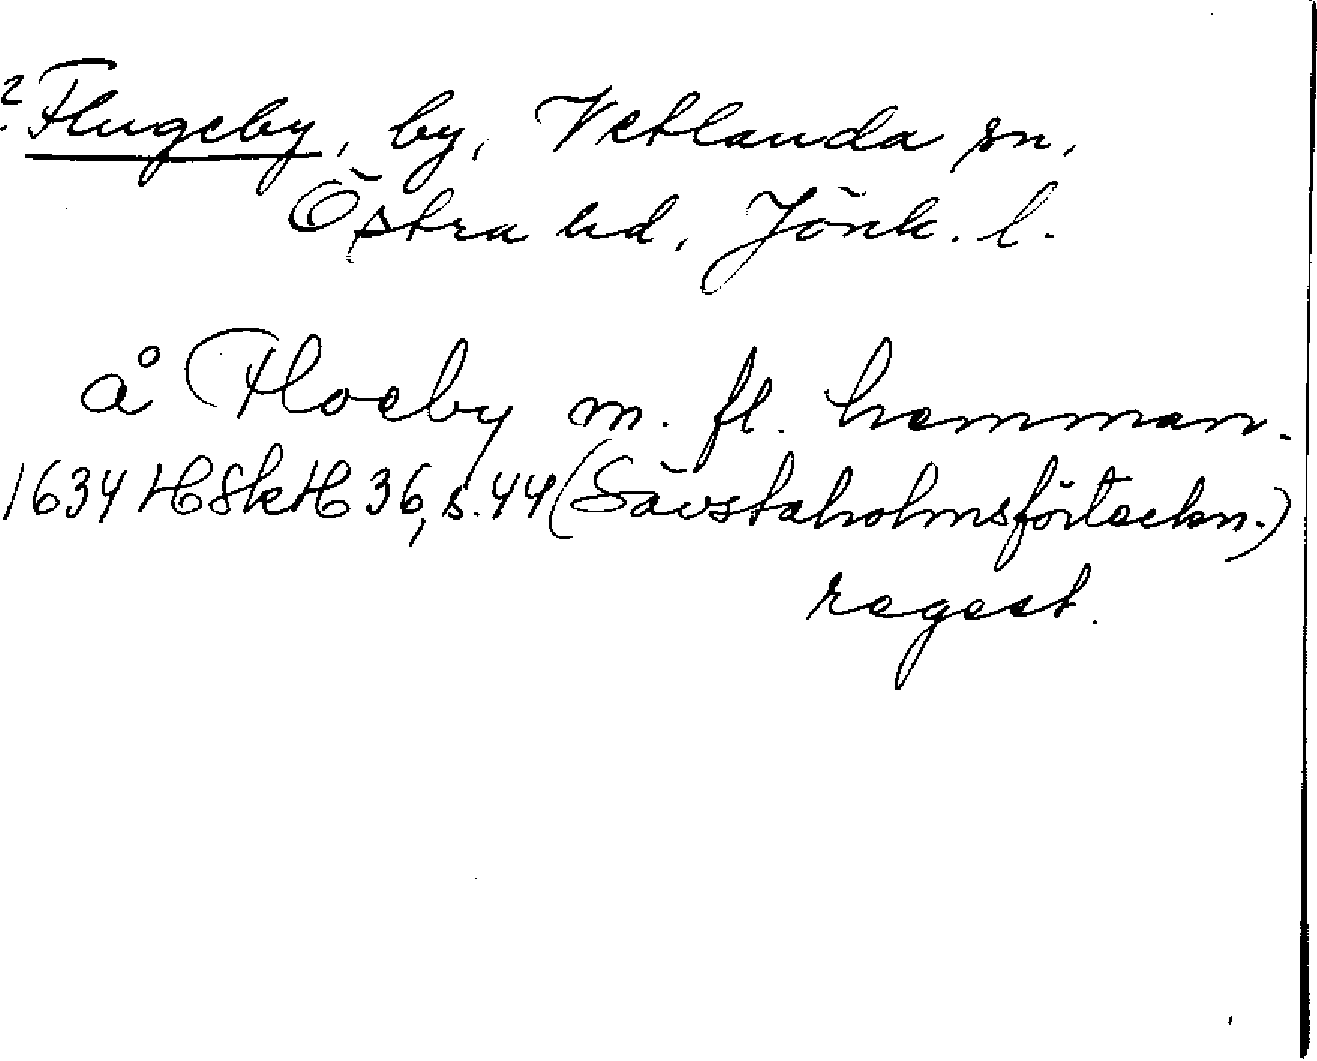 ? Flugeby, by, Vetlanda sn,
Östra hd, Jönk. l.
å Floeby m. fl. hemman.
1634 HSkH 36, s. 44 (Sävstaholmsförteckn.)
regest.